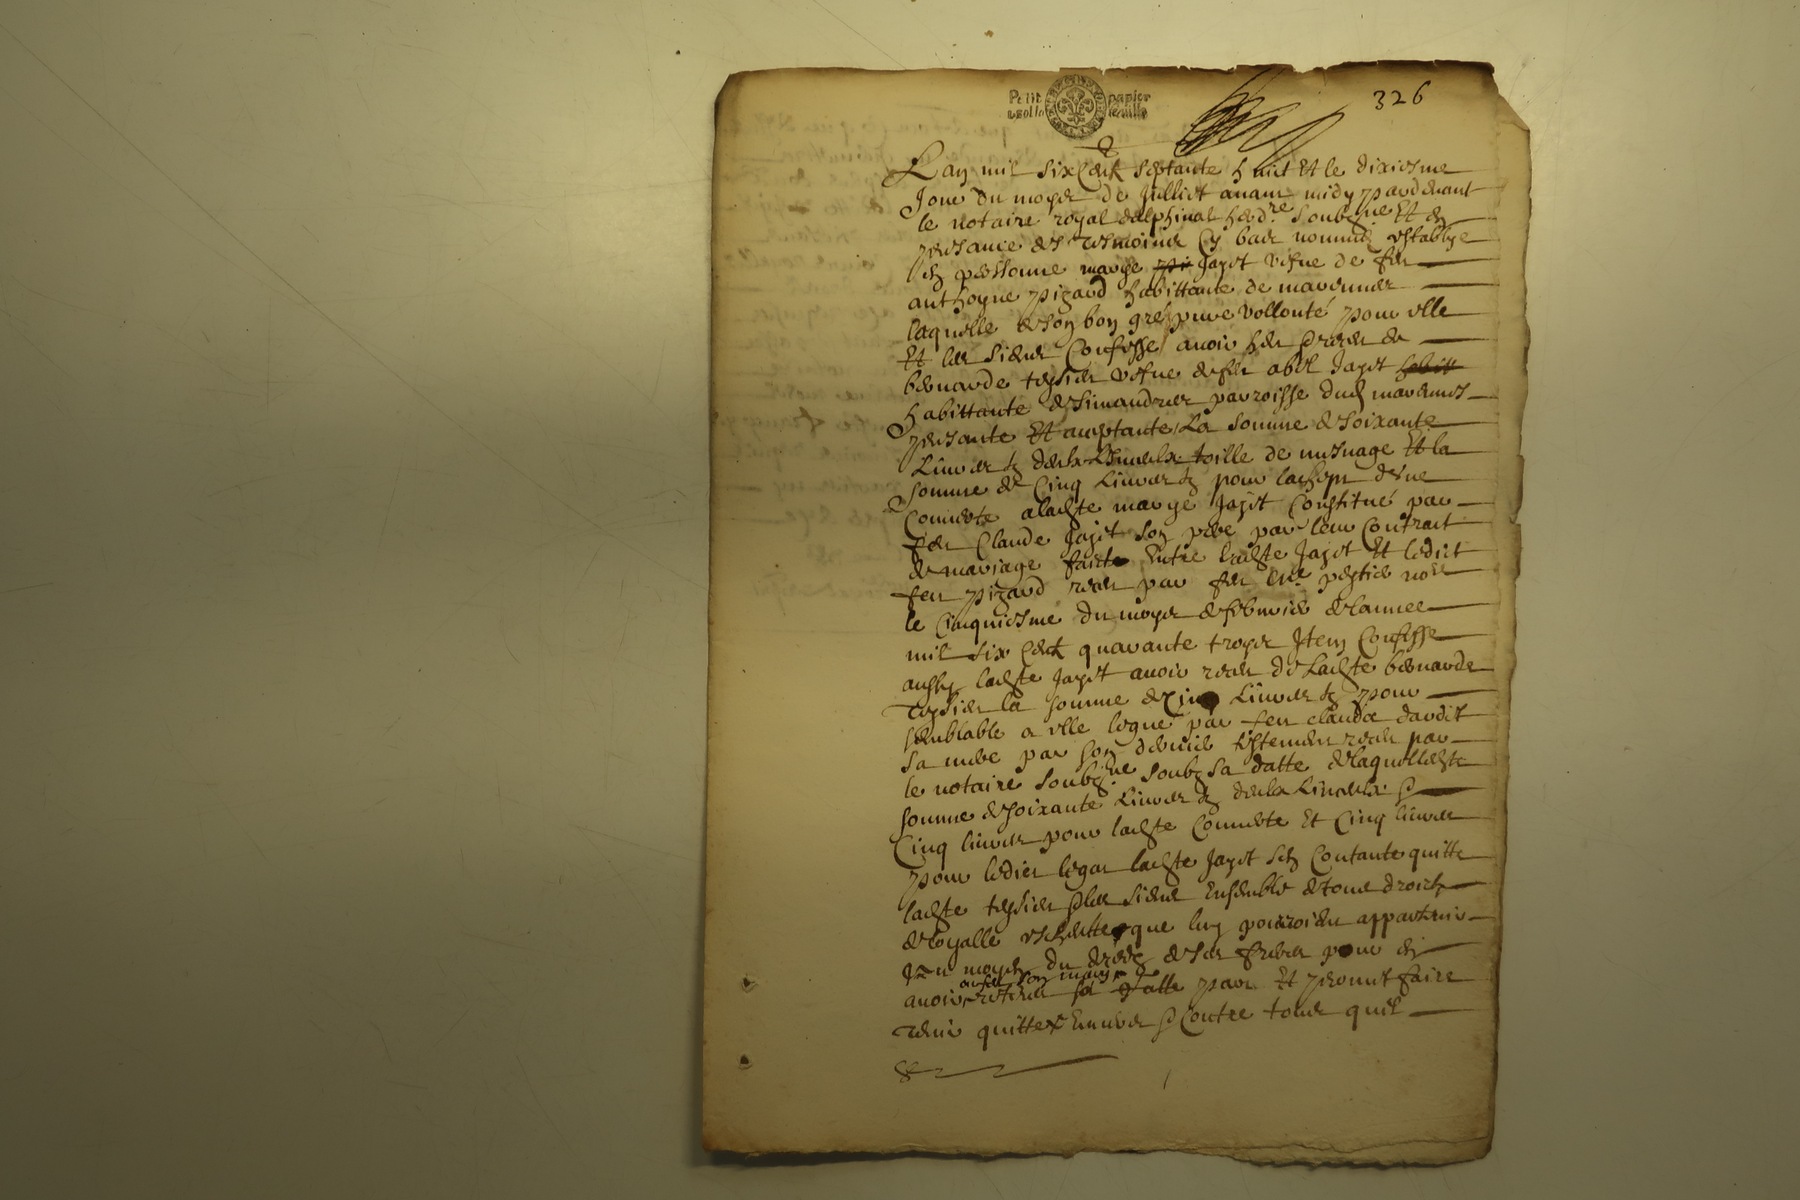 Petit papier
326
Lan mil six Cent septante huit Et le dixiesme
Jour du moys de Juillet avant midy pardevant
le notaire royal dalphinal hered.re soubz.ne Et en
presance des tesmoins Cy bas nommés establye
en personne marye Jayet vefve de feu
anthoyne pizard habittante de marennes
laquelle de son bon gré pure vollonté pour elle
Et les siens Confesse avoir heu de
bernarde teysier vefve de feu abel Jayet
habittante de simandres parroisse dud marennes
presante Et acceptante La somme de soixante
Livres toille de mesnage Et la
somme de Cinq Livres pour lachept dune
Couverte a ladte marye Jayet Constitué par
feu Claude Jayet son pere par leur Contrait
de mariage faict Entre ladte Jayet Et ledict
feu pizard receu par feu no.re
le Cinquiesme du moys de febvrier de lannee
mil six Cent quarante troys Item Confesse
aussy ladte Jayet avoir receu de Ladte bernarde
Teysier la somme de Cinq Livres pour
semblable a elle legué par feu claude
sa mere par son dernier testement receu par
le notaire soubz.ne soubz sa datte de laquelle dte
somme de soixante Livres
Cinq livres pour ladte Couverte Et Cinq livres
pour ledict legat ladte Jayet sen Contante quitte
ladte teysier les siens Ensemble de tous droicts
que luy pourroient appartenir
moyen du de ses freres pour en
avoir son mary
par Et promet faire
tenir quitte Envers Contre tous quil